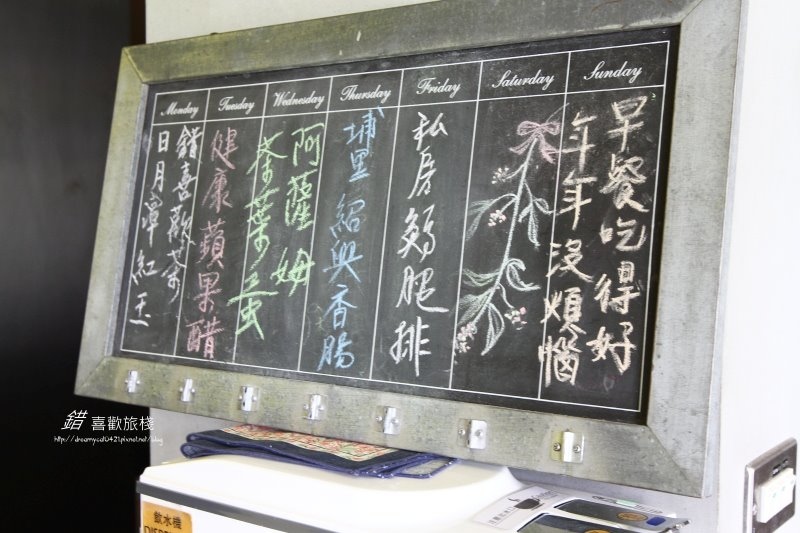 Monday Tuesday Wednesday Thursday Friday Saturday Sunday
早餐吃得好
年年沒煩惱
私房鷄腿排
埔里紹興香腸
阿薩姆
茶葉蛋
健康蘋果醋
錯喜歡茶
日月潭紅玉
錯 喜歡旅棧
http://dreamycat0421.pixnet.net/blog
飲水機